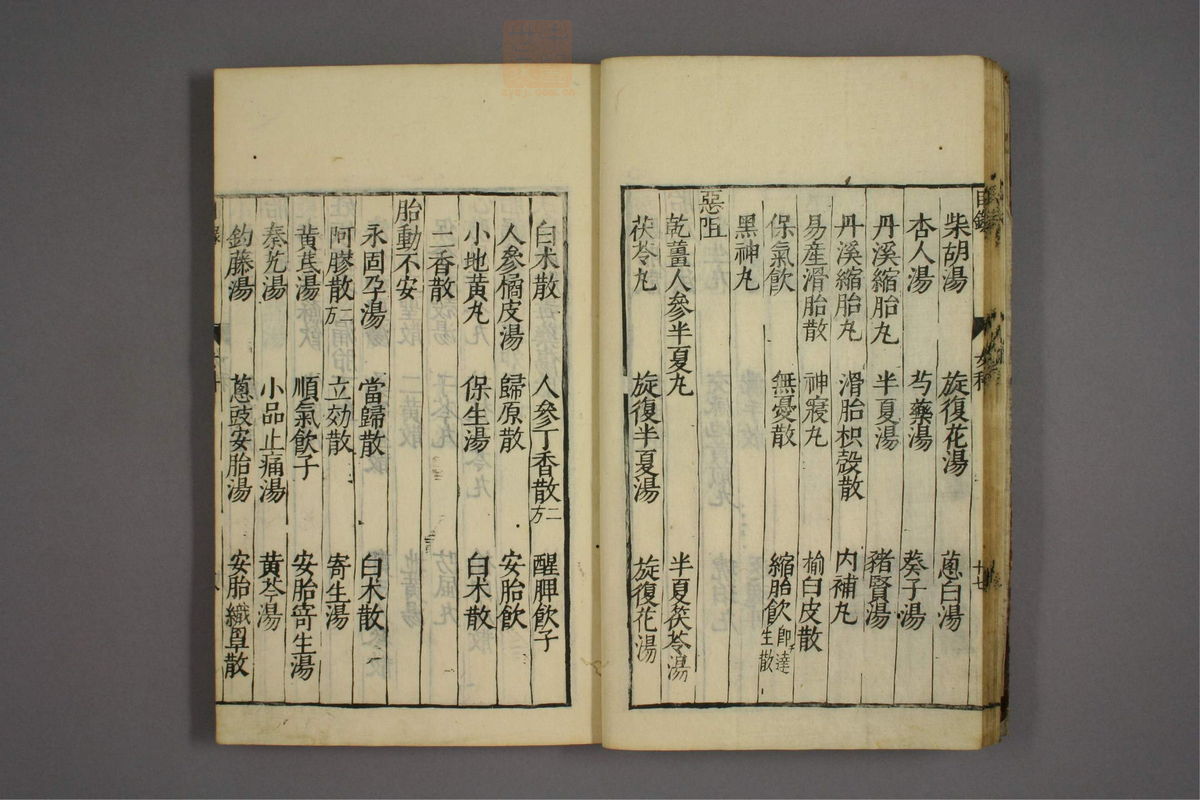 柴胡湯 旋復花湯 蔥白湯
杏人湯 芍藥湯 葵子湯
丹溪縮胎丸 半夏湯 豬腎湯
丹溪縮胎丸 滑胎枳殼散 內補丸
易產滑胎散 神寢丸 榆白皮散
保氣飲 無憂散 縮胎飲即達生散
黑神丸
惡阻
乾薑人參半夏丸 半夏茯苓湯
茯苓丸 旋復半夏湯 旋復花湯
白朮散 人參丁香散二方 醒脾飲子
人參橘皮湯 歸原散 安胎飲
小地黃丸 保生湯 白朮散
二香散
胎動不安
永固孕湯 當歸散 白朮散
阿膠散二方 立効散 寄生湯
黃芪湯 順氣飲子 安胎寄生湯
秦艽湯 小品止痛湯 黃芩湯
鉤藤湯 蔥豉安胎湯 安胎鐵罩散